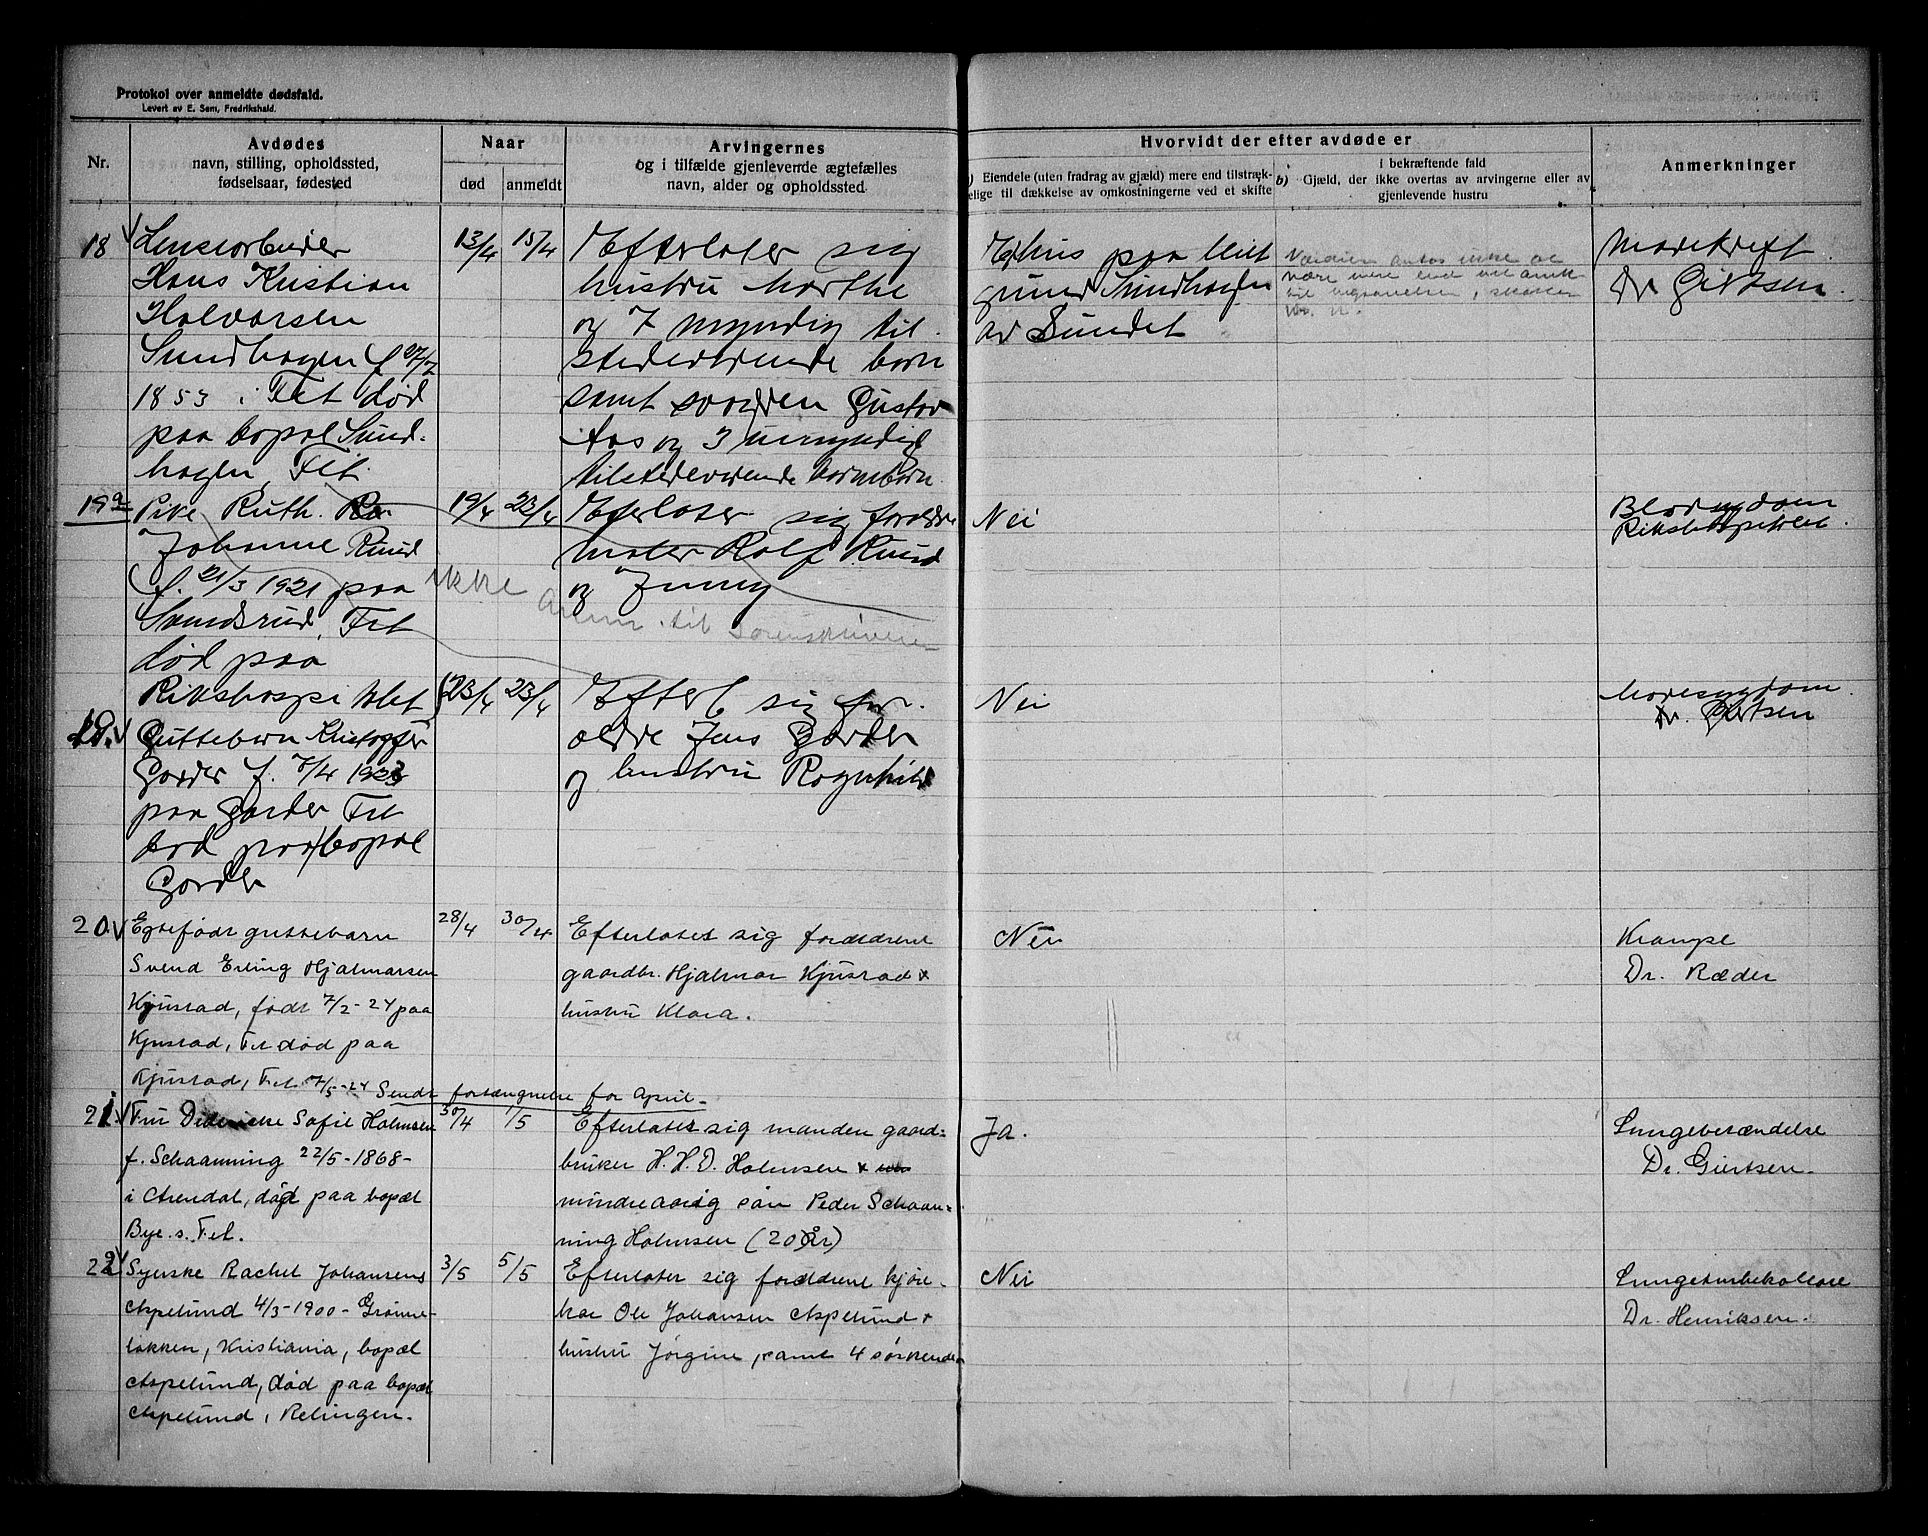 Protokol over anmeldte dødsfald.
Levert av E. Sem, Fredrikshald.
Nr.
Avdødes
navn, stilling, opholdssted,
fødselsaar, fødested
Naar
død
anmeldt
Arvingernes
og i tilfælde gjenlevende ægtefælles
navn, alder og opholdssted
Hvorvidt der efter avdøde er
a) Eiendele (uten fradrag av gjæld) mere end tilstræk-
kelige til dækkelse av omkostningerne ved et skifte
i bekræftende fald
b) Gjæld, der ikke overtas av arvingerne eller av
gjenlevende hustru
Anmerkninger
18
Lensearbeider
Hans Kristian
Halvorsen
Sundhagen f 27/7
1853 i Fet død
paa bopæl Sund-
hagen, Fet.
13/4
15/4
Efterlater sig
hustru Marthe
og 7 myndig til
stedeværende børn
samt Gustav
Aas og 3 umyndige
tilstedeværende barnebarn
Et hus paa leiet
grund Sundhagen
av Sundet
Værdien antas ikke at
være mere end
til begravelsen, skatter
Mavekræft
Dr Giertsen.
19a
Pike Ruth
Johanne Ruud
f. 21/3 1921 paa
Svendsrud, Fet
død paa
Rikshospitalet
19/4
23/4
Efterlater sig forældre
maler Rolf Ruud
og Jenny
ikke anm. til sorenskriveren
Nei
Blodsygdom
Rikshospitalet.
19.
Guttebarn Kristoffer
Garder f. 7/4 1923
paa Garder Fet
død paa bopæl
Garder
23/4
23/4
Efterl sig for-
ældre Jens Garder
og hustru Ragnhild
Nei
Mavesygdom.
Dr. Giertsen
20.
Egtefødt guttebarn
Svend Erling Hjalmarsen
Kjusrad, født 7/2-24 paa
Kjusrad, Fet død paa
Kjusrad, Fet.
28/4
30/4
Efterlatet sig forældrene
gaardbr. Hjalmar Kjusrad +
hustru Klara.
Nei
Krampe
Dr. Ræder
7/5-24 Sendt fortegnelse for April.
21.
Fru Dedericke Sofie Holmsen
f. Schaanning 22/5-1868-
i Arendal, død paa bopæl
Bye s. Fet.
30/4
1/5
Efterlatet sig manden gaard-
bruker H. H. D. Holmsen +
mindreaarig søn Peder Schaan-
ning Holmsen (20 År)
Ja.
Lungebetændelse
Dr. Giertsen.
22
Syerske Rachel Johansens
Aspelund 4/3-1900- Grüner-
løkken, Kristiania, bopæl
Aspelund, død paa bopæl
Aspelund, Relingen.
3/5
5/5
Efterlater sig forældrene kjøre-
kar Ole Johansen Aspelund +
hustru Jørgine, samt 4 søskende
Nei
Lungetuberkolose
Dr. Henriksen.